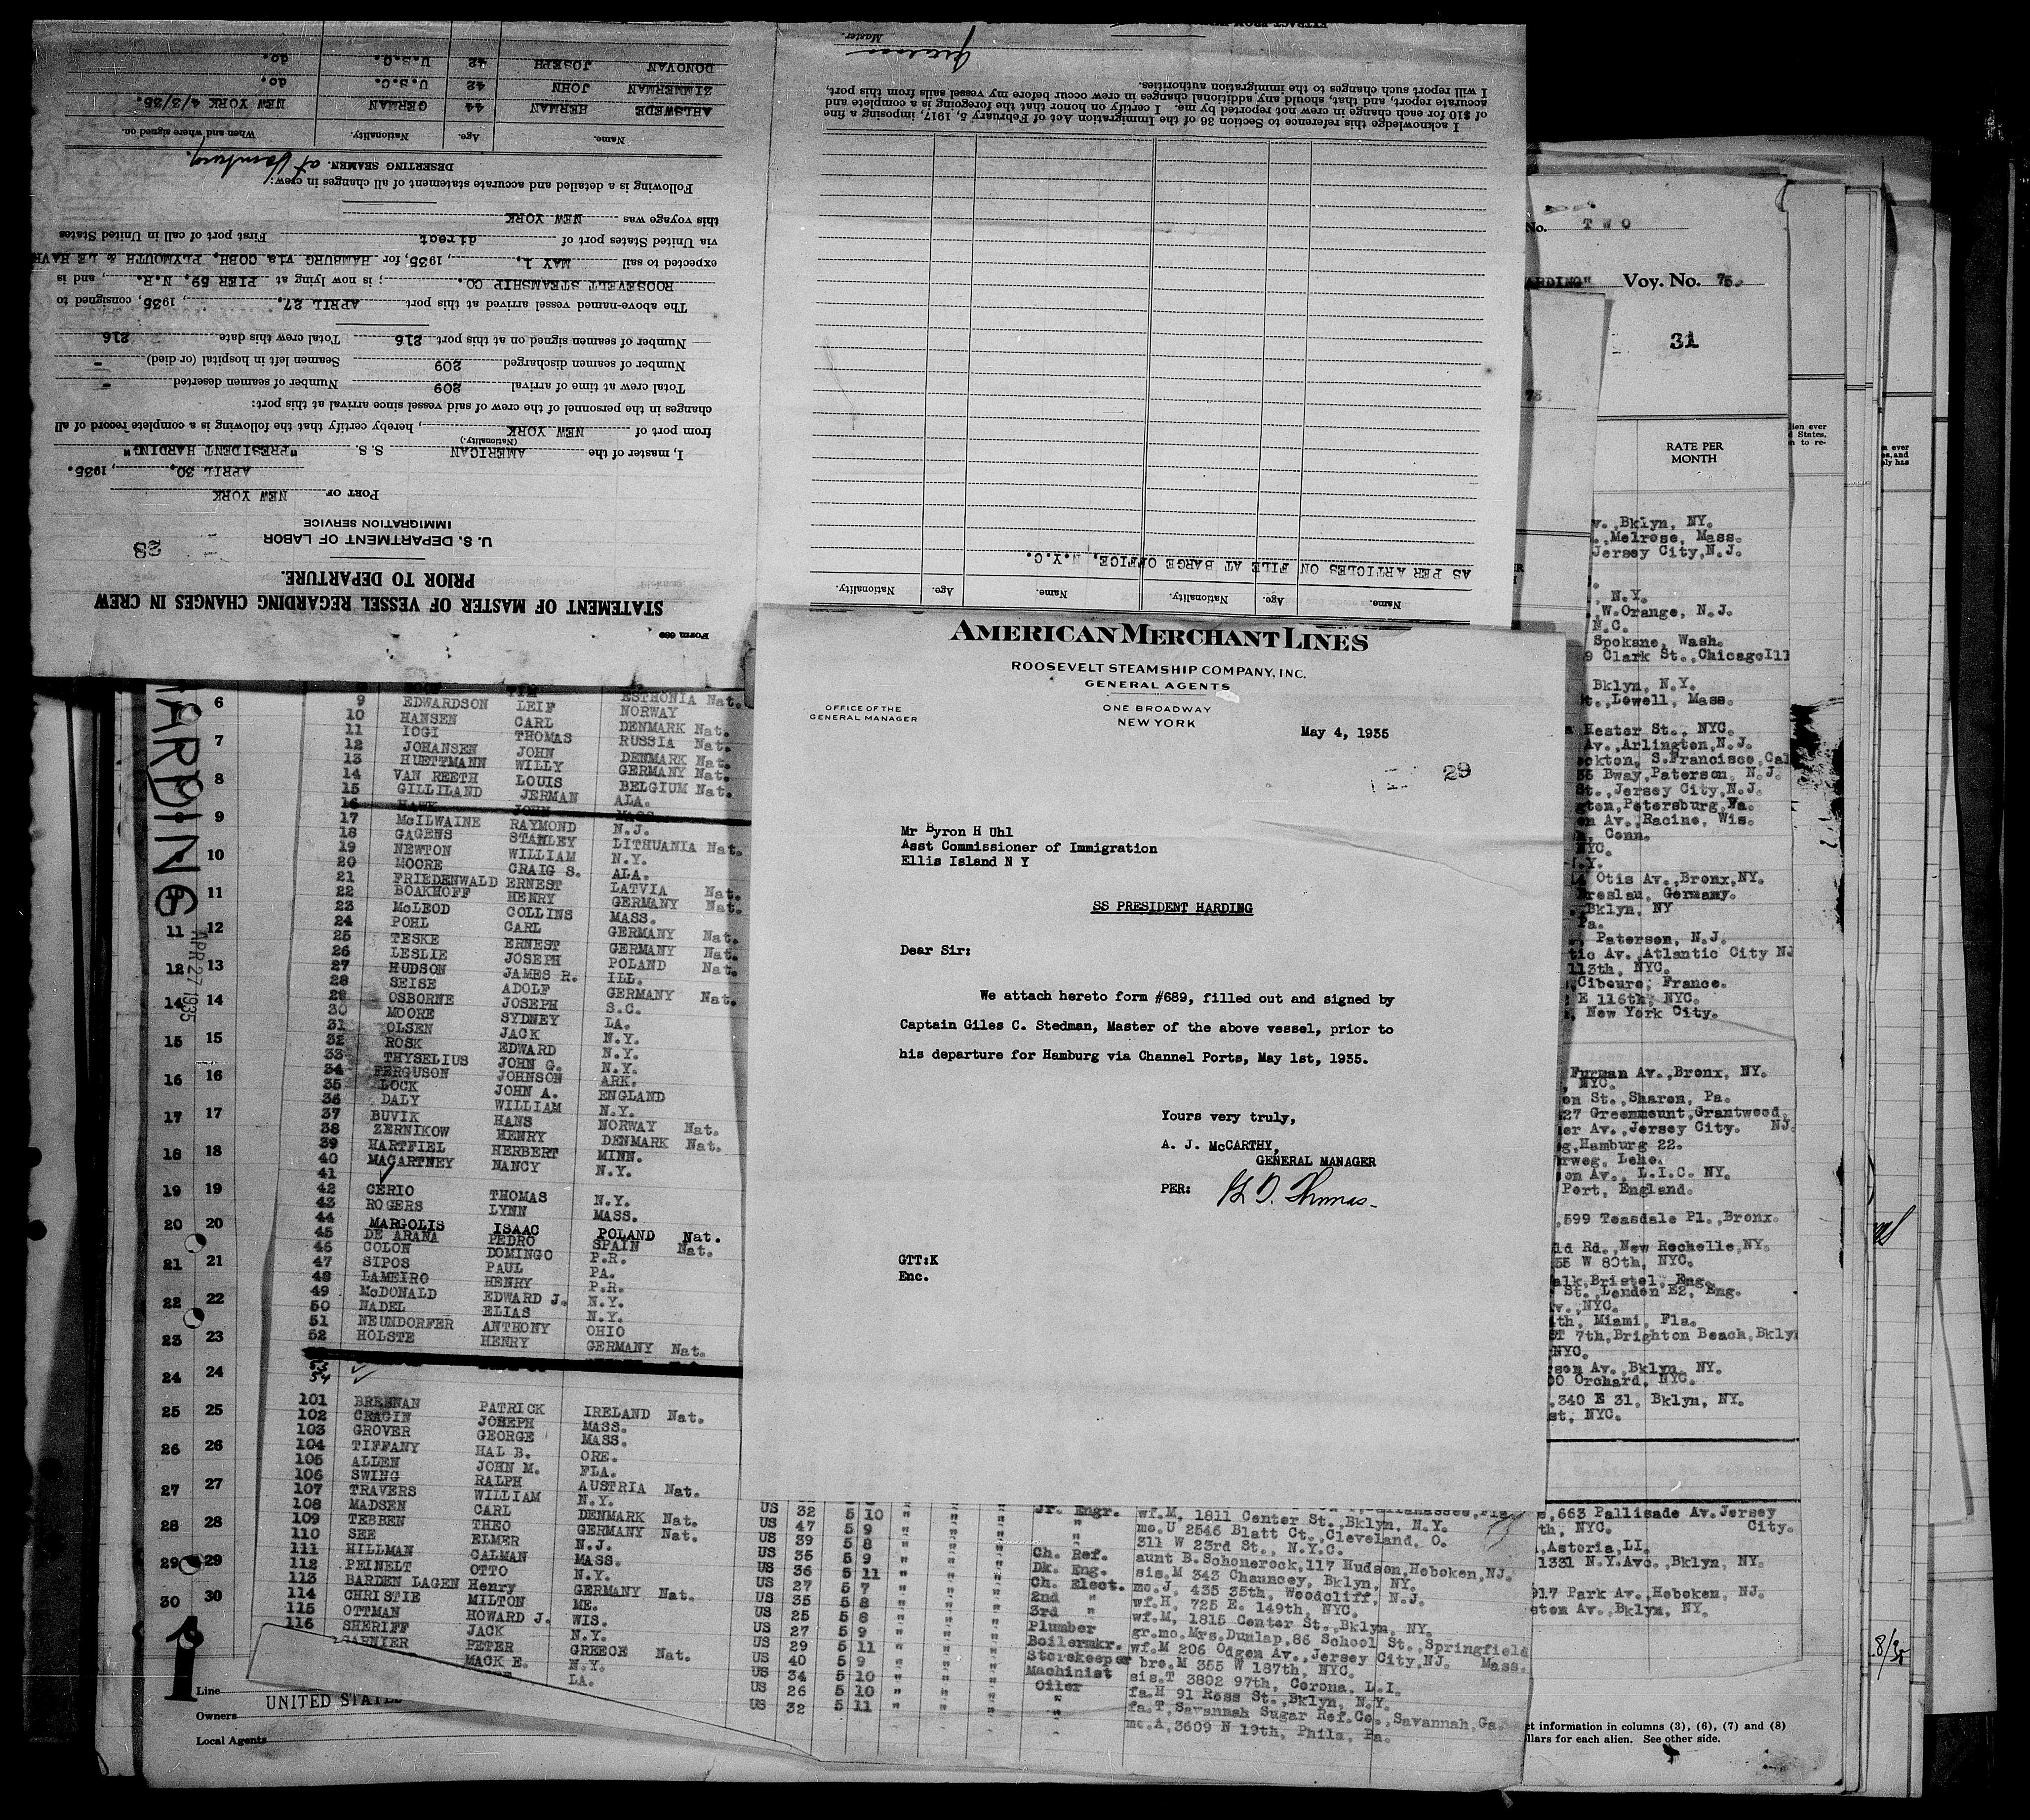 Form 689
STATEMENT OF MASTER OF VESSEL REGARDING CHANGES IN CREW
PRIOR TO DEPARTURE.
U. S. DEPARTMENT OF LABOR
IMMIGRATION SERVICE
28
PORT OF NEW YORK
APRIL 30, , 1935.
I, master of the AMERICAN S. S. "PRESIDENT HARDING"
(Nationality.)
from port of NEW YORK , hereby certify that the following is a complete record of all
changes in the personnel of the crew of said vessel since arrival at this port:
Total crew at time of arrival 209 Number of seamen deserted -
Number of seamen discharged 209 Seamen left in hospital (or died) -
Number of seamen signed on at this port 216 Total crew this date 216
The above-named vessel arrived at this port APRIL 27, , 1935, consigned to
ROOSEVELT STEAMSHIP CO. ; is now lying at PIER 59, N.R. , and is
expected to sail MAY 1, , 1935, for HAMBURG via COBH, PLYMOUTH & LE HAVR
via United States port of direct First port of call in United States
this voyage was NEW YORK
Following is a detailed and accurate statement of all changes in crew:
DESERTING SEAMEN. at Hamburg.
Name. Age. Nationality. When and where signed on.
AHLSWEDE HERMAN 44 GERMAN NEW YORK 4/3/35.
ZIMMERMAN JOHN 42 U.S.C. do.
DONOVAN JOSEPH 42 U.S.C. do.
Name. Age. Nationality. Name. Age. Nationality.
AS PER ARTICLES ON FILE AT BARGE OFFICE, N.Y.C.
I acknowledge this reference to Section 36 of the Immigration Act of February 5, 1917, imposing a fine
of $10 for each change in crew not reported by me. I certify on honor that the foregoing is a complete and
accurate report, and that, should any additional changes in crew occur before my vessel sails from this port,
I will report such changes to the immigration authorities.
Master.
AMERICAN MERCHANT LINES
ROOSEVELT STEAMSHIP COMPANY, INC.
GENERAL AGENTS
OFFICE OF THE
GENERAL MANAGER
ONE BROADWAY
NEW YORK
May 4, 1935
29
Mr Byron H Uhl
Asst Commissioner of Immigration
Ellis Island N Y
SS PRESIDENT HARDING
Dear Sir:
We attach hereto form #689, filled out and signed by
Captain Giles C. Stedman, Master of the above vessel, prior to
his departure for Hamburg via Channel Ports, May 1st, 1935.
Yours very truly,
A. J. McCARTHY,
GENERAL MANAGER
PER:
GTT:K
Enc.
HARDING
APR 27 1935
ESTHONIA Nat.
9 EDWARDSON LEIF NORWAY
10 HANSEN CARL DENMARK Nat.
11 IOGI THOMAS RUSSIA Nat.
12 JOHANSEN JOHN DENMARK Nat.
13 HUETTMANN WILLY GERMANY Nat.
14 VAN REETH LOUIS BELGIUM Nat.
15 GILLILAND JERMAN ALA.
16 HAWK JOHN MASS.
17 McILWAINE RAYMOND N.J.
18 GAGENS STANLEY LITHUANIA Nat.
19 NEWTON WILLIAM N.Y.
20 MOORE CRAIG S. ALA.
21 FRIEDENWALD ERNEST LATVIA Nat.
22 BOAKHOFF HENRY GERMANY Nat.
23 McLEOD COLLINS MASS.
24 POHL CARL GERMANY Nat.
25 TESKE ERNEST GERMANY Nat.
26 LESLIE JOSEPH POLAND Nat.
27 HUDSON JAMES R. ILL.
28 SEISE ADOLF GERMANY Nat.
29 OSBORNE JOSEPH S.C.
30 MOORE SYDNEY LA.
31 OLSEN JACK N.Y.
32 ROSK EDWARD N.Y.
33 THYSELIUS JOHN G. N.Y.
34 FERGUSON JOHNSON ARK.
35 LOCK JOHN A. ENGLAND
36 DALY WILLIAM N.Y.
37 BUVIK HANS NORWAY Nat.
38 ZERNIKOW HENRY DENMARK Nat.
39 HARTFIEL HERBERT MINN.
40 MACARTNEY NANCY N.Y.
41
42 CERIO THOMAS N.Y.
43 ROGERS LYNN MASS.
44 MARGOLIS ISAAC POLAND Nat.
45 DE ARANA PEDRO SPAIN Nat.
46 COLON DOMINGO P.R.
47 SIPOS PAUL PA.
48 LAMEIRO HENRY P.R.
49 McDONALD EDWARD J. N.Y.
50 NADEL ELIAS N.Y.
51 NEUNDORFER ANTHONY OHIO
52 HOLSTE HENRY GERMANY Nat.
53
54
101 BRENNAN PATRICK IRELAND Nat.
102 CRAGIN JOSEPH MASS.
103 GROVER GEORGE MASS.
104 TIFFANY HAL B. ORE.
105 ALLEN JOHN M. FLA.
106 SWING RALPH AUSTRIA Nat.
107 TRAVERS WILLIAM N.Y.
108 MADSEN CARL DENMARK Nat.
109 TEBBEN THEO GERMANY Nat.
110 SEE ELMER N.J.
111 HILLMAN CALMAN MASS.
112 PEINELT OTTO N.Y.
113 BARDEN LAGEN Henry GERMANY Nat.
114 CHRISTIE MILTON ME.
115 OTTMAN HOWARD J. WIS.
116 SHERIFF JACK N.Y.
PETER GREECE Nat.
MACK E. N.Y.
LA.
US 32 5 10 " " Jr. Engr. wf.M, 1811 Center St., Bklyn, N.Y.
US 47 5 9 " " " mo.U 2546 Blatt Ct., Cleveland, O.
US 39 5 8 " " 311 W 23rd St., N.Y.C.
US 35 5 9 " " Ch. Ref. aunt B.Schonerock,117 Hudson,Hoboken,NJ.
US 36 5 11 " " Dk. Eng. sis.M 343 Chauncey, Bklyn, NY.
US 27 5 7 " " Ch. Elect. mo.J, 435 35th, Woodcliff, N.J.
US 35 5 8 " " 2nd " wf.H, 725 E. 149th, NYC.
US 25 5 8 " " 3rd " wf.M, 1815 Center St., Bklyn, NY.
US 27 5 9 " " Plumber gr.mo.Mrs.Dunlap,86 School St., Springfield Mass.
US 29 5 11 " " Boilermkr. wf.M 206 Odgen Av., Jersey City,NJ.
US 40 5 9 " " Storekeeper bro.M 355 W 187th, NYC.
US 34 5 10 " " Machinist sis.T 3802 97th, Corona, L.I.
US 26 5 10 " " Oiler fa.H 91 Ross St., Bklyn, N.Y.
US 32 5 11 " " " fa.T,Savannah Sugar Ref.Co.,Savannah,Ga.
mo.A,3609 N 19th, Phila, Pa.
Line
UNITED STATE
Owners
Local Agents
No. TWO
ARDING" Voy. No. 75.
31
75
RATE PER
MONTH
v.,Bklyn, NY.
.,Melrose, Mass.
Jersey City,N.J.
N.Y.
W.Orange, N.J.
N.C.
Spokane, Wash.
9 Clark St.,ChicagoIll
Bklyn, N.Y.
t., Lowell, Mass.
Hester St., NYC.
Av.,Arlington,N.J.
ckton, S.Francisco,Cal
35 Bway,Paterson, N.J.
St.,Jersey City,N.J.
gton,Petersburg,Va.
on Av., Racine, Wis.
, Conn.
NYC.
N.Y.
14 Otis Av.,Bronx,NY.
Breslau, Germany.
Bklyn, NY
Pa.
, Paterson, N.J.
tic Av. Atlantic City NJ
113th, NYC.
Cibeure, France.
E 116th, NYC.
, New York City.
Furman Av.,Bronx, NY.
, NYC.
on St.,Sharon, Pa.
27 Greenmount,Grantwood,
er Av.,Jersey City. NJ.
g,Hamburg 22.
rweg, Lehe.
on Av., L.I.C. NY.
Port, England.
,599 Teasdale Pl.,Bronx.
ld Rd.,New Rochelle,NY.
55 W 80th, NYC.
alk,Bristol, Eng.
St.,London E2, Eng.
v.,NYC.
th, Miami, Fla.
ST 7th,Brighton Beach,Bklyn
NYC.
rson Av., Bklyn, NY.
00 Orchard, NYC.
,340 E 31, Bklyn, NY.
st, NYC.
,663 Pallisade Av.Jersey City.
th, NYC.
,Astoria,LI.
1331 N.Y.Ave.,Bklyn, NY.
917 Park Av.,Hoboken, NJ.
ston Av., Bklyn, NY.
ct information in columns (3), (6), (7) and (8)
llars for each alien. See other side.